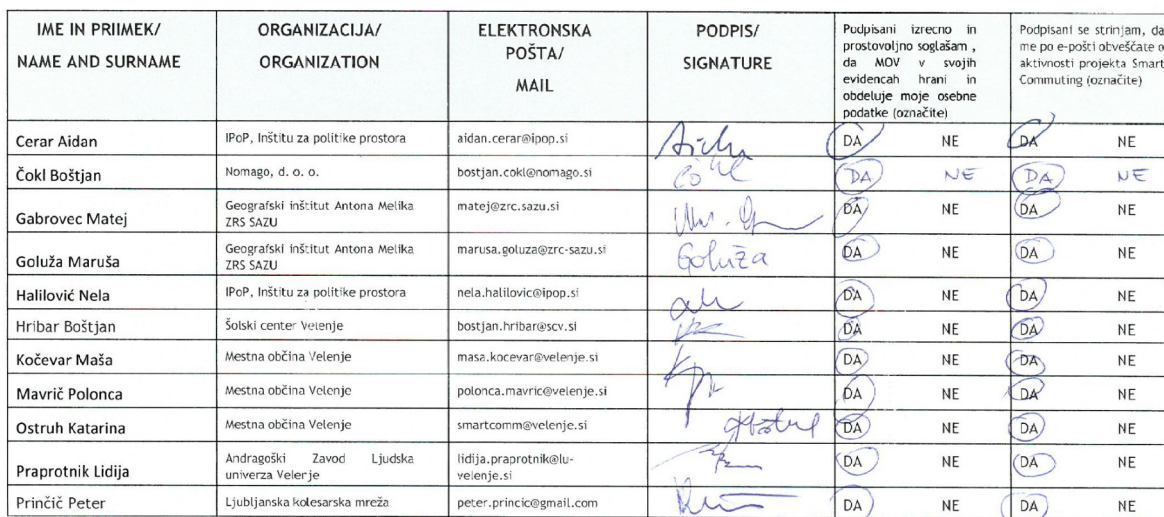 IME IN PRIIMEK/
NAME AND SURNAME
ORGANIZACIJA/
ORGANIZATION
ELEKTRONSKA
POŠTA/
MAIL
PODPIS/
SIGNATURE
Podpisani izrecno in
prostovoljno soglašam ,
da MOV v svojih
evidencah hrani in
obdeluje moje osebne
podatke (označite)
Podpisani se strinjam, da
me po e-pošti obveščate o
aktivnosti projekta Smart
Commuting (označite)
Cerar Aidan IPoP, Inštitu za politike prostora aidan.cerar@ipop.si DA NE DA NE
Čokl Boštjan Nomago, d. o. o. bostjan.cokl@nomago.si DA NE DA NE
Gabrovec Matej Geografski inštitut Antona Melika matej@zrc.sazu.si DA NE DA NE
ZRS SAZU
Goluža Maruša Geografski inštitut Antona Melika marusa.goluza@zrc-sazu.si Goluža DA NE DA NE
ZRS SAZU
Halilović Nela IPoP, Inštitu za politike prostora nela.halilovic@ipop.si DA NE DA NE
Hribar Boštjan Šolski center Velenje bostjan.hribar@scv.si DA NE DA NE
Kočevar Maša Mestna občina Velenje masa.kocevar@velenje.si DA NE DA NE
Mavrič Polonca Mestna občina Velenje polonca.mavric@velenje.si DA NE DA NE
Ostruh Katarina Mestna občina Velenje smartcomm@velenje.si DA NE DA NE
Praprotnik Lidija Andragoški Zavod Ljudska lidija.praprotnik@lu- DA NE DA NE
univerza Velenje velenje.si
Prinčič Peter Ljubljanska kolesarska mreža peter.princic@gmail.com DA NE DA NE